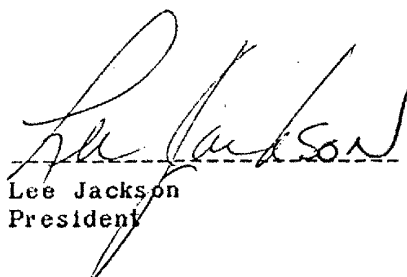 Lee Jackson
Lee Jackson
President